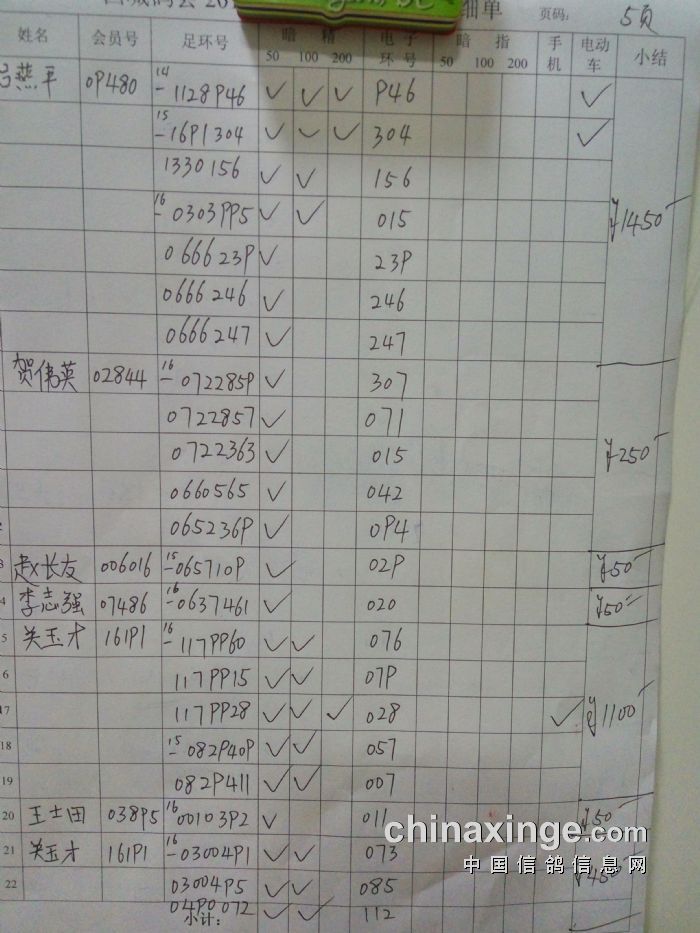 细单 页码: 5页
姓名 会员号 足环号 暗 精 50 100 200 电子环号 暗 指 50 100 200 手机 电动车 小结
燕平 0P480 14-1128P46 ✓ ✓ ✓ P46 ✓
15-16P1304 ✓ ✓ ✓ 304 ✓
1330156 ✓ ✓ 156
16-0303PP5 ✓ ✓ 015 ¥1450
066623P ✓ 23P
0666246 ✓ 246
0666247 ✓ 247
贺伟英 02844 16-072285P ✓ 307
0722857 ✓ 071
0722363 ✓ 015 ¥250
0660565 ✓ 042
2 065236P ✓ 0P4
3 赵长友 006016 15-065710P ✓ 02P ¥50
4 李志强 07486 16-0637461 ✓ 020 ¥50
5 关玉才 161P1 16-117PP60 ✓ ✓ 076
6 117PP15 ✓ ✓ 07P
17 117PP28 ✓ ✓ ✓ 028 ✓ ¥1100
18 15-082P40P ✓ ✓ 057
19 082P411 ✓ ✓ 007
20 王士田 038P5 16-00103P2 ✓ 011 ¥50
21 关玉才 161P1 16-03004P1 ✓ ✓ 073
22 03004P5 ✓ ✓ 085 ¥450
04P0072 ✓ ✓ 112
小计:
chinaxinge.com
中国信鸽信息网